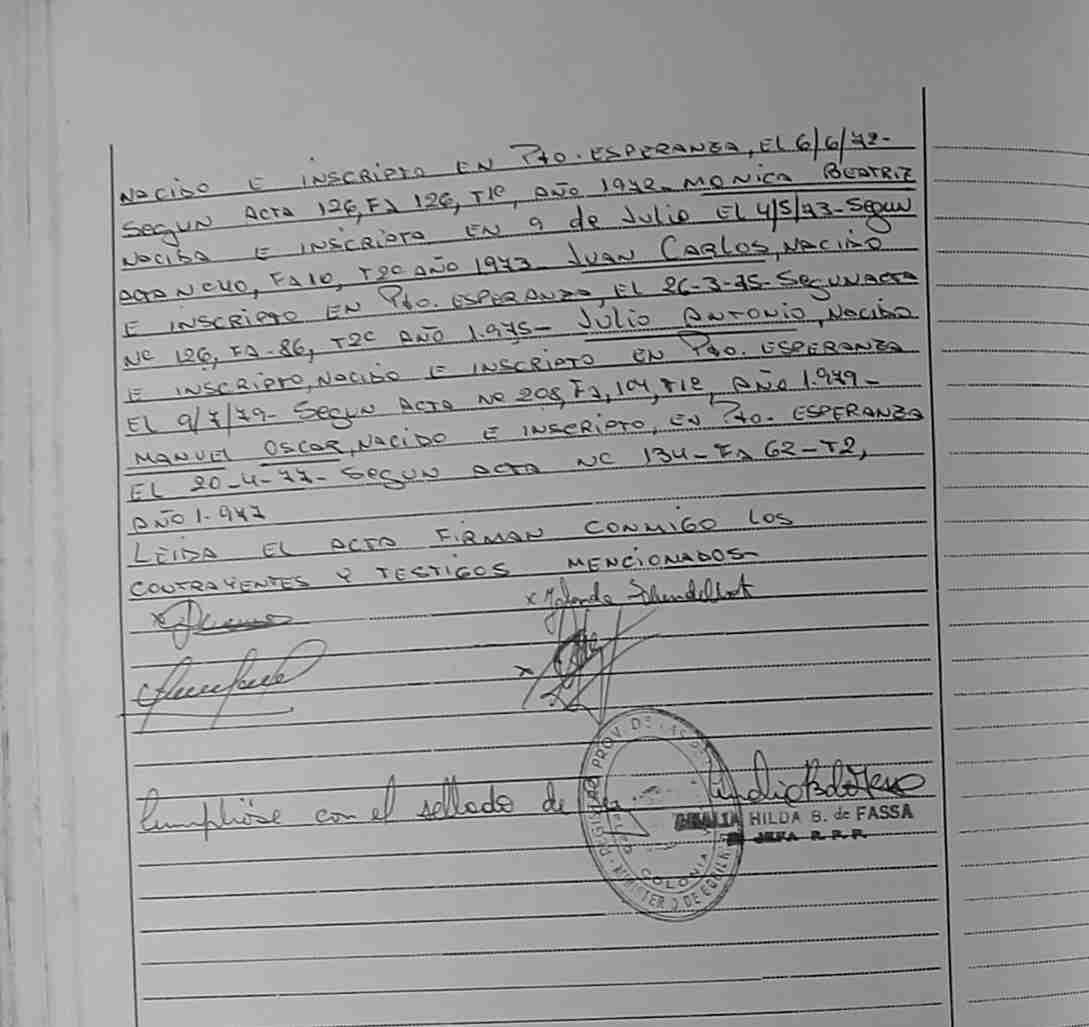 Nacido E inscripto EN Pto. ESPERANZA, El 6/6/72-
Segun Acta 126, Fº 126, T1º, Año 1972- MONICA BEATRIZ
Nacida E INSCRIPTA EN 9 de Julio El 4/5/73- Segun
Acta Nº 40, Fº 10, T2º Año 1973- JUAN CARLOS, Nacido
E INSCRIPTO EN Pto. ESPERANZA, EL 26-3-75- Segun Acta
Nº 126, Fº- 86, T2º Año 1.975- Julio ANTONIO, Nacido
E INSCRIPTO, Nacido E INSCRIPTO EN Pto. ESPERANZA
EL 9/7/79- Segun Acta Nº 208, Fº, 104, T1º, Año 1.979-
MANUEL OSCAR, NACIDO E INSCRIPTO, EN Pto. ESPERANZA
EL 20-4-77- Segun Acta Nº 134- Fº 62- T2,
AÑO 1.977
LEIDA EL ACTA FIRMAN CONMIGO LOS
CONTRAYENTES Y TESTIGOS MENCIONADOS-
Cumplióse con el sellado de
HILDA B. de FASSA
JEFA R.P.P.
PROV. DE LAS
COLONIA